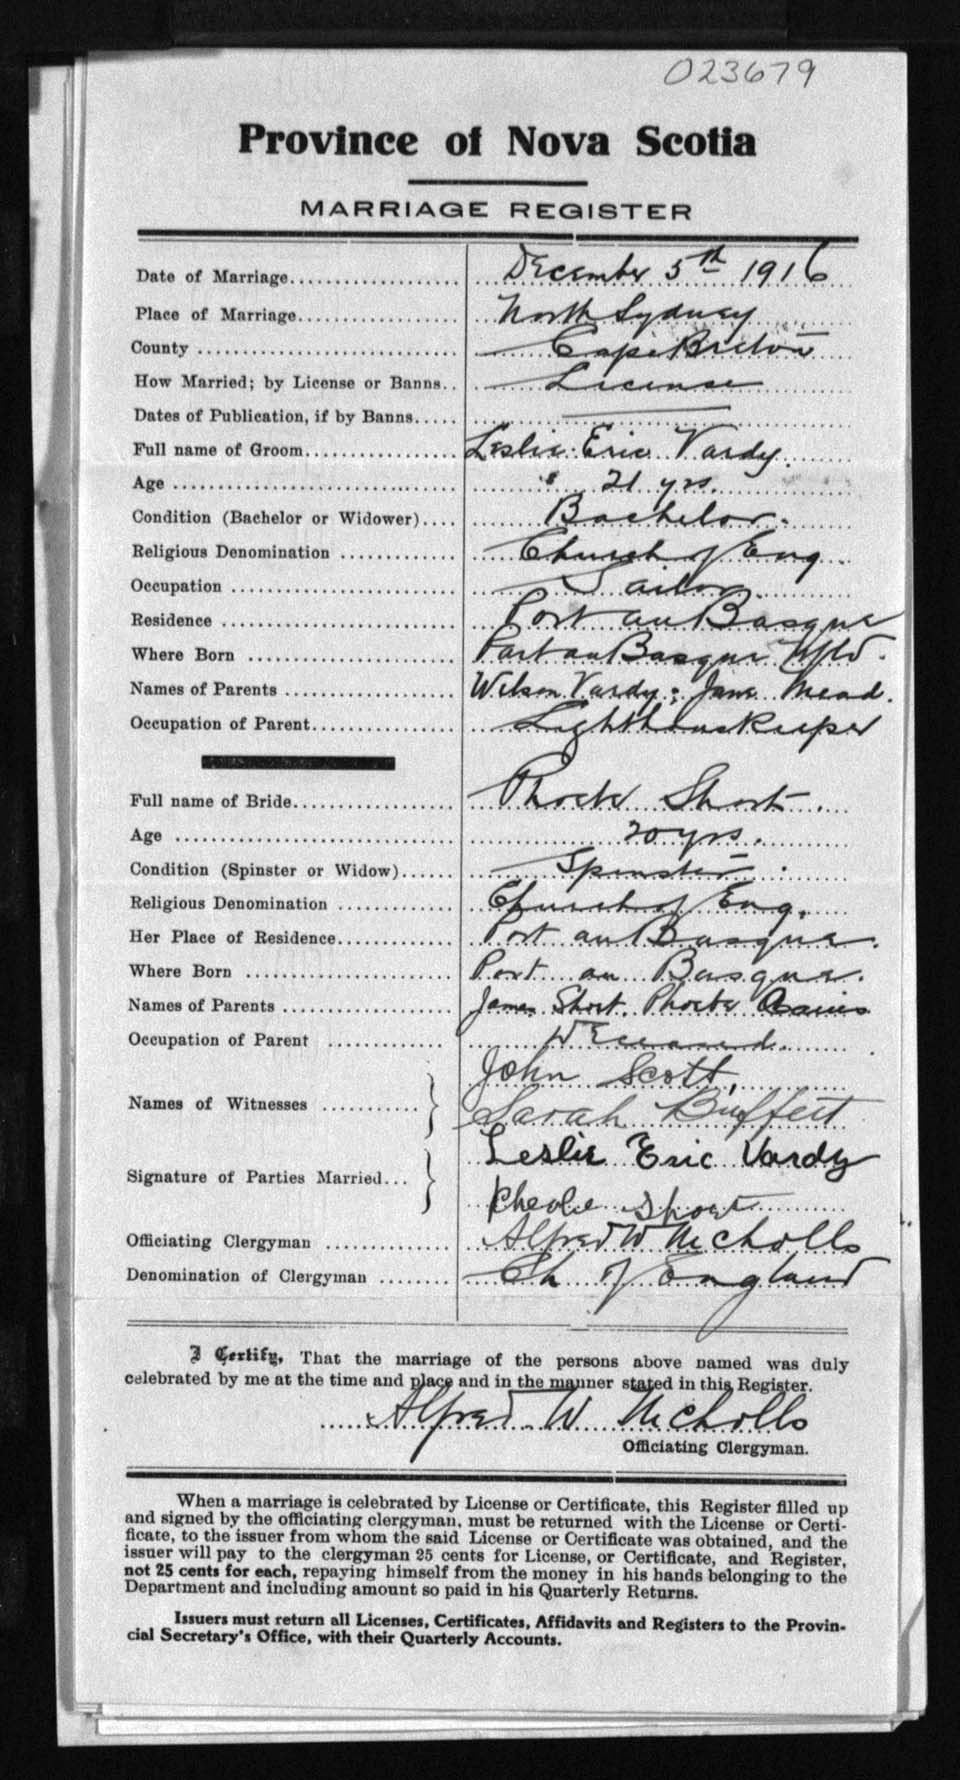 023679
Province of Nova Scotia
MARRIAGE REGISTER
Date of Marriage.................... December 5th 1916
Place of Marriage................... North Sydney
County ............................. Cape Breton
How Married; by License or Banns.. License
Dates of Publication, if by Banns.....
Full name of Groom.................. Leslie Eric Vardy.
Age ................................ 21 yrs.
Condition (Bachelor or Widower).... Bachelor.
Religious Denomination ............. Church of Eng
Occupation ......................... Tailor.
Residence .......................... Port au Basque
Where Born ......................... Port au Basque Nfld.
Names of Parents ................... Wilson Vardy; Jane Mead.
Occupation of Parent................ Lighthouskeeper
Full name of Bride.................. Phoebe Short.
Age ................................ 20 yrs.
Condition (Spinster or Widow)...... Spinster
Religious Denomination ............. Church of Eng.
Her Place of Residence.............. Port au Basque.
Where Born ......................... Port au Basque.
Names of Parents ................... James Short. Phoebe
Occupation of Parent .............
Names of Witnesses ........... } John Scott,
Sarah Buffett
Signature of Parties Married... } Leslie Eric Vardy
Pheobe Short
Officiating Clergyman .............. Alfred W Nicholls
Denomination of Clergyman ........ Ch of England
I Certify, That the marriage of the persons above named was duly
celebrated by me at the time and place and in the manner stated in this Register.
Alfred W Nicholls
Officiating Clergyman.
When a marriage is celebrated by License or Certificate, this Register filled up
and signed by the officiating clergyman, must be returned with the License or Certi-
ficate, to the issuer from whom the said License or Certificate was obtained, and the
issuer will pay to the clergyman 25 cents for License, or Certificate, and Register,
not 25 cents for each, repaying himself from the money in his hands belonging to the
Department and including amount so paid in his Quarterly Returns.
Issuers must return all Licenses, Certificates, Affidavits and Registers to the Provin-
cial Secretary's Office, with their Quarterly Accounts.